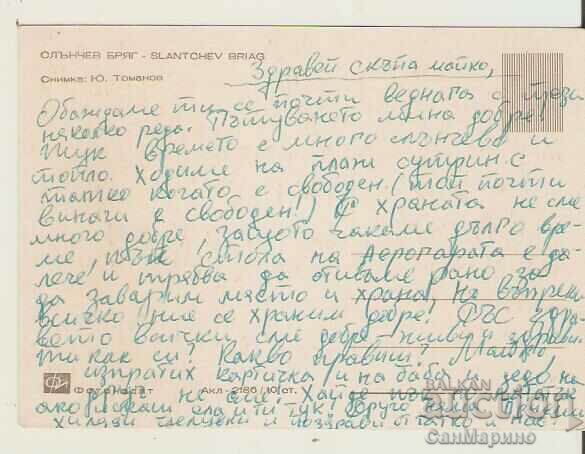 СЛЪНЧЕВ БРЯГ - SLANTCHEV BRIAG
Снимка: Ю. Томанов
Здравей скъпа майко,
Обаждаме ти се почти веднага с тези
няколко реда. Пътуването мина добре!
Тук времето е много слънчево и
топло. Ходиме на плаж сутрин с
татко когато е свободен! (той почти
винаги е свободен!) С храната не сме
много добре, защото чакаме дълго вре-
ме, пък стола на Аерогарата е да-
лече и трябва да отиваме рано за
да заварим място и храна. Но въпреки
всичко ние се храним добре! Със здра-
вето всички сме добре - живи и здрави.
Ти как си? Какво правиш? Майко,
изпратих картичка и на баба и дядо на
не сме. Хайде
ако искаш ела и ти тук! Друго няма
Хиляди целувки и поздрави от татко и нас!
Фотоиздат Акл - 2186 / 10 ст.
BALKAN
auction
СанМарино